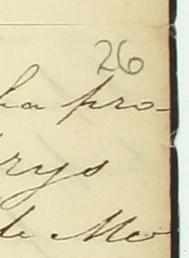 26
ha pro-
rys
de Me